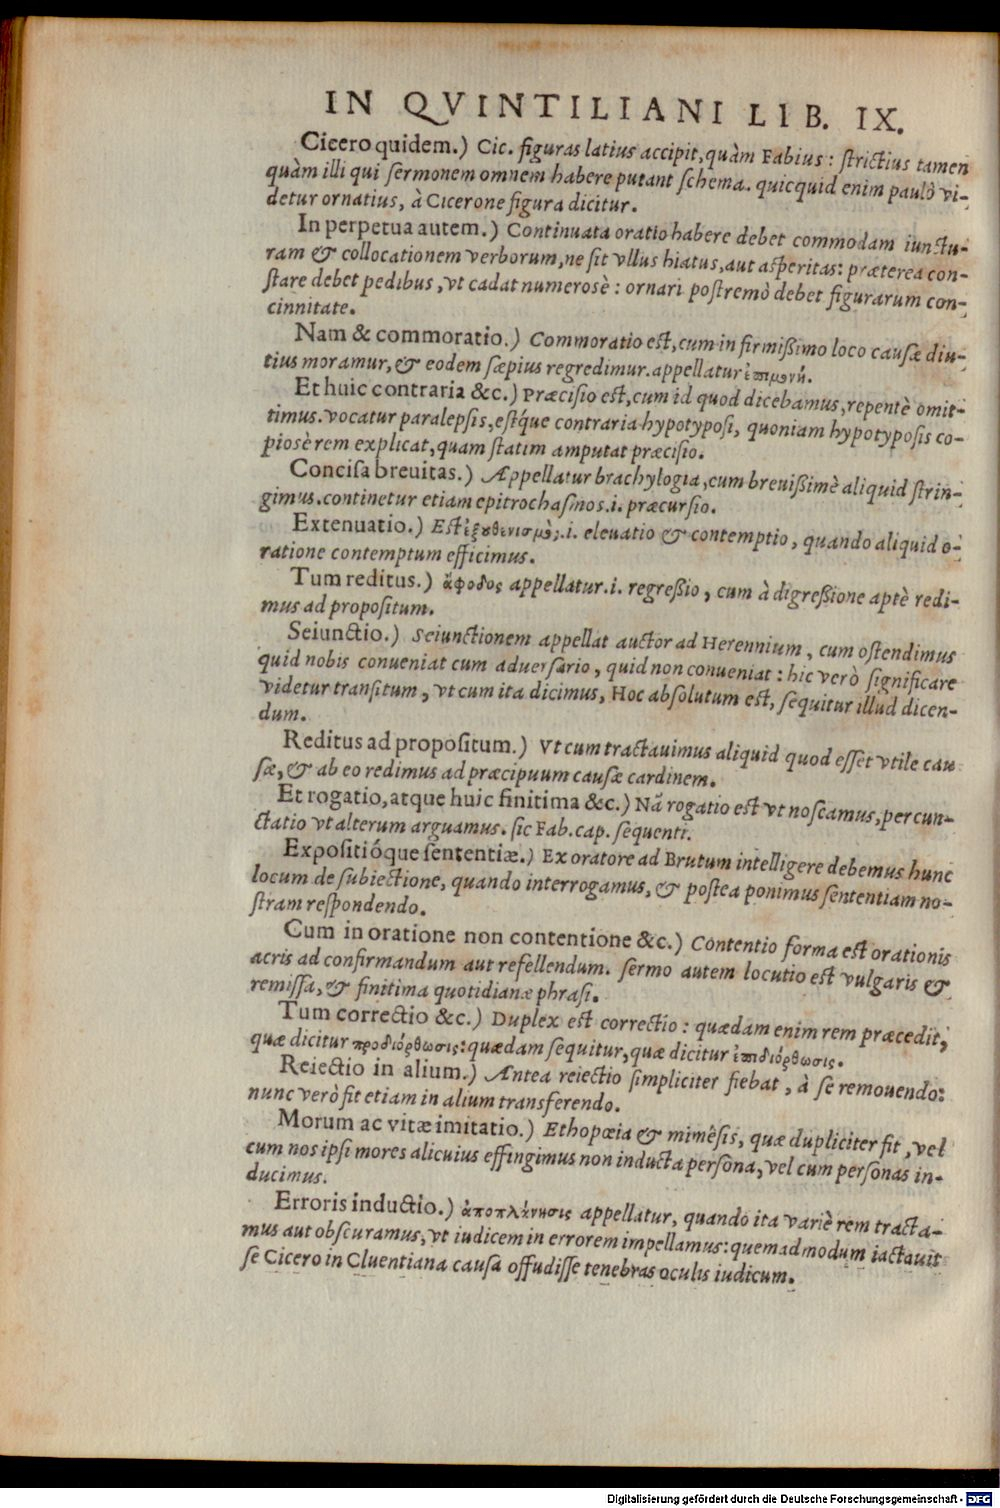 IN QVINTILIANI LIB. IX.
Cicero quidem.) Cic. figuras latius accipit, quàm Fabius: strictius tamen
quàm illi qui sermonem omnem habere putant schema. quicquid enim paulò vi-
detur ornatius, à Cicerone figura dicitur.
In perpetua autem.) Continuata oratio habere debet commodam iunctu-
ram & collocationem verborum, ne sit vllus hiatus, aut asperitas: præterea con-
stare debet pedibus, vt cadat numerosè: ornari postremò debet figurarum con-
cinnitate.
Nam & commoratio.) Commoratio est, cum in firmißimo loco causæ diu-
tius moramur, & eodem sæpius regredimur. appellatur ἐπιμονή.
Et huic contraria &c.) Præcisio est, cum id quod dicebamus, repentè omit-
timus. vocatur paralepsis, estq́ue contraria hypotyposi, quoniam hypotyposis co-
piosè rem explicat, quam statim amputat præcisio.
Concisa breuitas.) Appellatur brachylogia, cum breuißimè aliquid strin-
gimus. continetur etiam epitrochasmos .i. præcursio.
Extenuatio.) Est ἐξουθενισμὸς .i. eleuatio & contemptio, quando aliquid o-
ratione contemptum efficimus.
Tum reditus.) ἄφοδος appellatur .i. regreßio, cum à digreßione aptè redi-
mus ad propositum.
Seiunctio.) Seiunctionem appellat auctor ad Herennium, cum ostendimus
quid nobis conueniat cum aduersario, quid non conueniat: hic verò significare
videtur transitum, vt cum ita dicimus, Hoc absolutum est, sequitur illud dicen-
dum.
Reditus ad propositum.) Vt cum tractauimus aliquid quod esset vtile cau
sæ, & ab eo redimus ad præcipuum causæ cardinem.
Et rogatio, atque huic finitima &c.) Nã rogatio est vt noscamus, percun-
ctatio vt alterum arguamus. sic Fab. cap. sequenti.
Expositióque sententiæ.) Ex oratore ad Brutum intelligere debemus hunc
locum de subiectione, quando interrogamus, & postea ponimus sententiam no-
stram respondendo.
Cum in oratione non contentione &c.) Contentio forma est orationis
acris ad confirmandum aut refellendum. sermo autem locutio est vulgaris &
remissa, & finitima quotidianæ phrasi.
Tum correctio &c.) Duplex est correctio: quædam enim rem præcedit,
quæ dicitur προδιόρθωσις: quædam sequitur, quæ dicitur ἐπιδιόρθωσις.
Reiectio in alium.) Antea reiectio simpliciter fiebat, à se remouendo:
nunc verò fit etiam in alium transferendo.
Morum ac vitæ imitatio.) Ethopœia & mimêsis, quæ dupliciter fit, vel
cum nos ipsi mores alicuius effingimus non inducta persona, vel cum personas in-
ducimus.
Erroris inductio.) ἀποπλάνησις appellatur, quando ita variè rem tracta-
mus aut obscuramus, vt iudicem in errorem impellamus: quemadmodum iactauit
se Cicero in Cluentiana causa offudisse tenebras oculis iudicum.
Digitalisierung gefördert durch die Deutsche Forschungsgemeinschaft - DFG